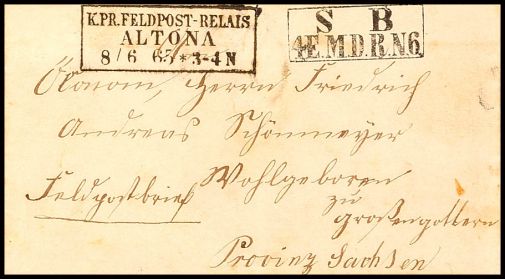 K.PR.FELDPOST-RELAIS
ALTONA
8/6 65 * 3-4 N
S B
4E.M.D.R.N6.
Herrn Friedrich
Andreas Schönmeyer
Wohlgeboren
Feldpostbrief
zu
Großengottern
Provinz Sachsen